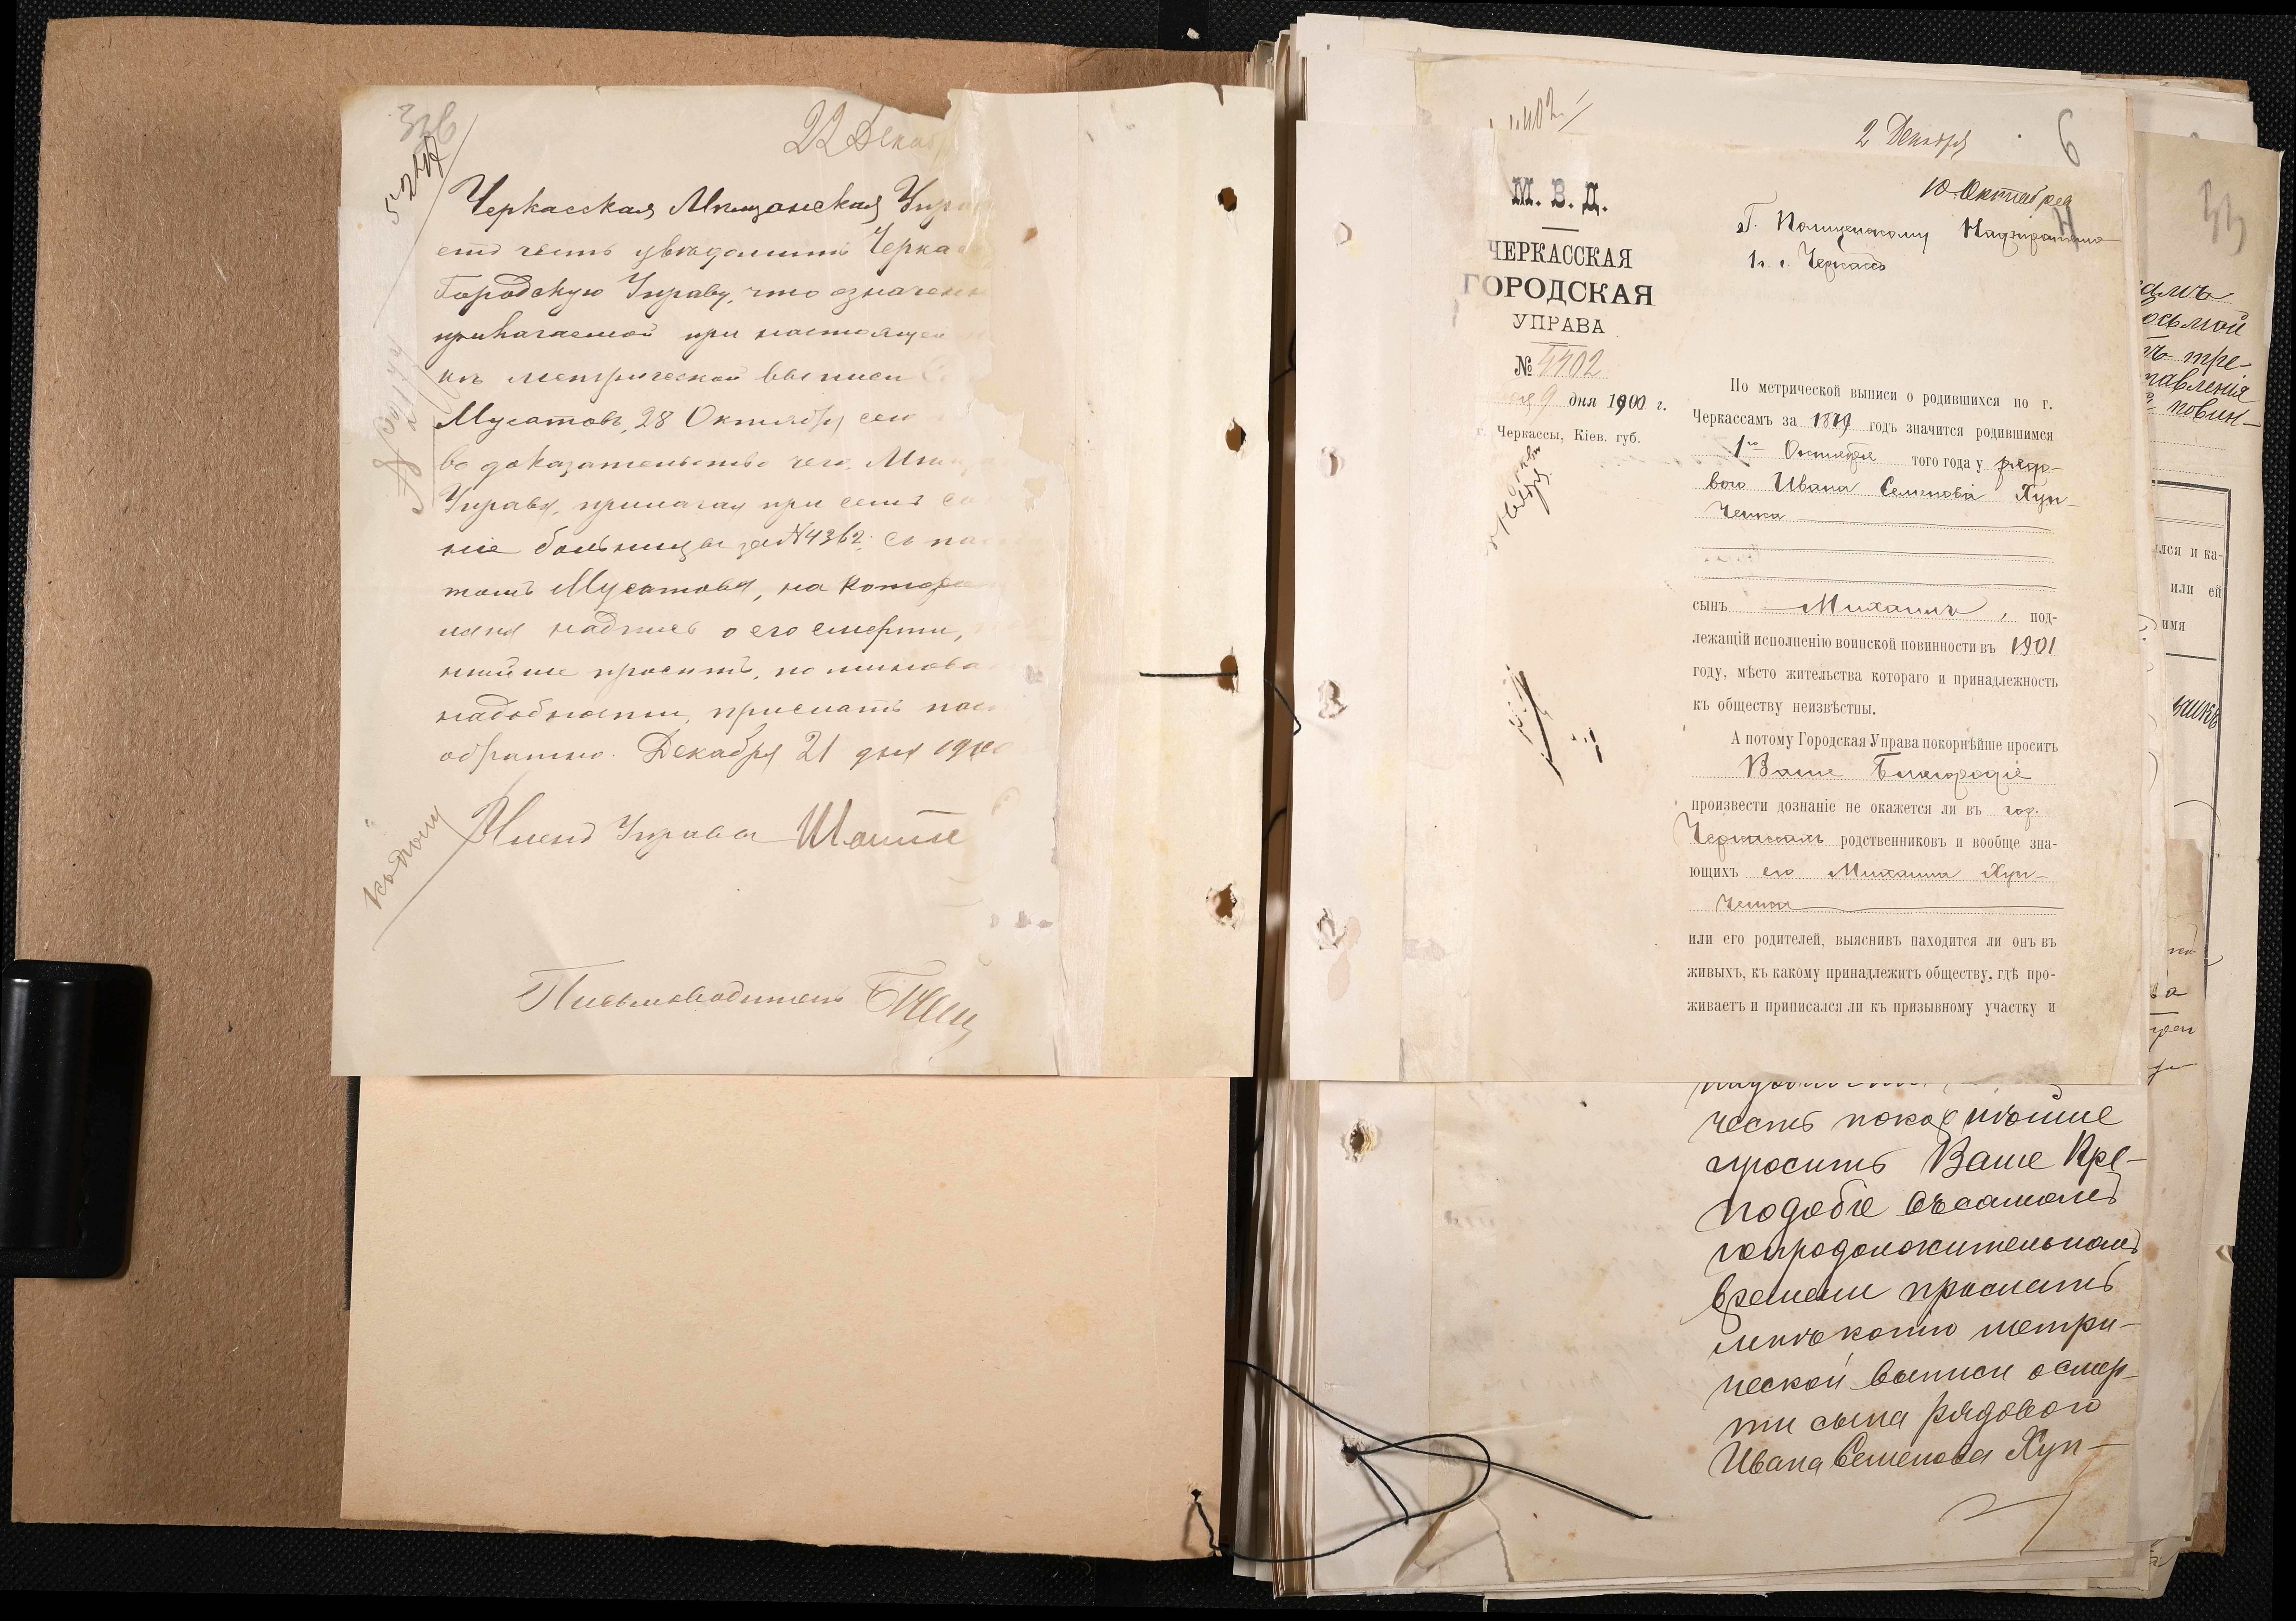 336
22 Декабр
Черкасская Мещанская Упра
етъ честь увѣдомить Черка
Городскую Управу, что означен
прилагаемой при настоящем
ихъ метрической выписи
Мусатовъ, 28 Октября сего
въ доказательство чего, Мѣщ
Управа, прилагая при семъ
ніе больницы за №4362, съ пас
томъ Мусатова, на котор
лана надпись о его смерти,
нѣйше проситъ, по минова
надобности, прислать пас
обратно. Декабря 21 дня 1900
Членъ Управы
Письмоводитель
4402
2 Декабря
6
10 Октября
М. В. Д.
ЧЕРКАССКАЯ
ГОРОДСКАЯ
УПРАВА
№ 4402
9 дня 1900 г.
г. Черкассы, Кіев. губ.
Г. Полицейскому Надзирателю
1 ч. г. Черкассъ
По метрической выписи о родившихся по г.
Черкассамъ за 1879 годъ значится родившимся
1го Октября того года у рядо-
вого Ивана Семенова Хуп-
ченка
сынъ Михаилъ, под-
лежащій исполненію воинской повинности въ 1901
году, мѣсто жительства котораго и принадлежность
къ обществу неизвѣстны.
А потому Городская Управа покорнѣйше проситъ
Ваше Благородіе
произвести дознаніе не окажется ли въ гор.
Черкассахъ родственниковъ и вообще зна-
ющихъ его Михаила Хуп-
ченка
или его родителей, выяснивъ находится ли онъ въ
живыхъ, къ какому принадлежитъ обществу, гдѣ про-
живаетъ и приписался ли къ призывному участку и
честь покорнѣйше
просить Ваше Пре-
подобіе въ самомъ
непродолжительномъ
времени прислать
мнѣ копію метри-
ческой выписи о смер-
ти сына рядового
Ивана Семенова Хуп-
33
осьмой
тре-
тавленія
повин-
лся и ка-
или ей
имя